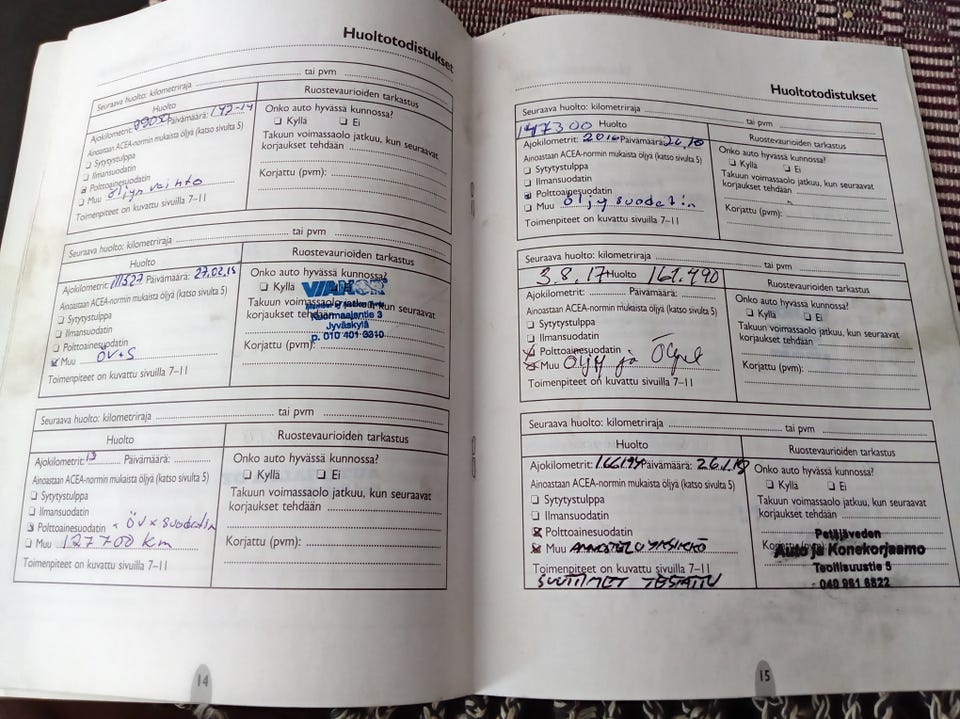 Huoltotodistukset
Seuraava huolto: kilometriraja tai pvm
Huolto
Ruostevaurioiden tarkastus
Ajokilometrit: Päivämäärä:
Ainoastaan ACEA-normin mukaista öljyä (katso sivulta 5)
Sytytystulppa
Ilmansuodatin
Polttoainesuodatin
Muu öljyn vaihto
Toimenpiteet on kuvattu sivuilla 7–11
Onko auto hyvässä kunnossa?
Kyllä Ei
Takuun voimassaolo jatkuu, kun seuraavat
korjaukset tehdään
Korjattu (pvm):
Seuraava huolto: kilometriraja tai pvm
Huolto
Ruostevaurioiden tarkastus
Ajokilometrit: 111527 Päivämäärä: 27.02.15
Ainoastaan ACEA-normin mukaista öljyä (katso sivulta 5)
Sytytystulppa
Ilmansuodatin
Polttoainesuodatin
Muu ÖV+S
Toimenpiteet on kuvattu sivuilla 7–11
Onko auto hyvässä kunnossa?
Kyllä
VIANOR
Takuun voimassaolo jatkuu, kun seuraavat
korjaukset tehdään
Kuormaajantie 3
Jyväskylä
p. 010 401 3310
Korjattu (pvm):
Seuraava huolto: kilometriraja tai pvm
Huolto
Ruostevaurioiden tarkastus
Ajokilometrit: Päivämäärä:
Ainoastaan ACEA-normin mukaista öljyä (katso sivulta 5)
Sytytystulppa
Ilmansuodatin
Polttoainesuodatin × ÖV × suodatin
Muu 127700 km
Toimenpiteet on kuvattu sivuilla 7–11
Onko auto hyvässä kunnossa?
Kyllä Ei
Takuun voimassaolo jatkuu, kun seuraavat
korjaukset tehdään
Korjattu (pvm):
14
Huoltotodistukset
Seuraava huolto: kilometriraja tai pvm
147300 Huolto
Ruostevaurioiden tarkastus
Ajokilometrit: 2016 Päivämäärä: 26.10
Ainoastaan ACEA-normin mukaista öljyä (katso sivulta 5)
Sytytystulppa
Ilmansuodatin
Polttoainesuodatin
Muu öljysuodatin
Toimenpiteet on kuvattu sivuilla 7–11
Onko auto hyvässä kunnossa?
Kyllä Ei
Takuun voimassaolo jatkuu, kun seuraavat
korjaukset tehdään
Korjattu (pvm):
Seuraava huolto: kilometriraja tai pvm
3.8.17 Huolto 161.490
Ruostevaurioiden tarkastus
Ajokilometrit: Päivämäärä:
Ainoastaan ACEA-normin mukaista öljyä (katso sivulta 5)
Sytytystulppa
Ilmansuodatin
Polttoainesuodatin
Muu Öljy ja
Toimenpiteet on kuvattu sivuilla 7–11
Onko auto hyvässä kunnossa?
Kyllä Ei
Takuun voimassaolo jatkuu, kun seuraavat
korjaukset tehdään
Korjattu (pvm):
Seuraava huolto: kilometriraja tai pvm
Huolto
Ruostevaurioiden tarkastus
Ajokilometrit: Päivämäärä:
Ainoastaan ACEA-normin mukaista öljyä (katso sivulta 5)
Sytytystulppa
Ilmansuodatin
Polttoainesuodatin
Muu ANNOSTELUYKSIKKÖ
Toimenpiteet on kuvattu sivuilla 7–11
SUUTTIMET TESTATTU
Onko auto hyvässä kunnossa?
Kyllä Ei
Takuun voimassaolo jatkuu, kun seuraavat
korjaukset tehdään
Petäjäveden
Korjattu (pvm):
Auto ja Konekorjaamo
Teollisuustie 5
040 961 6822
15